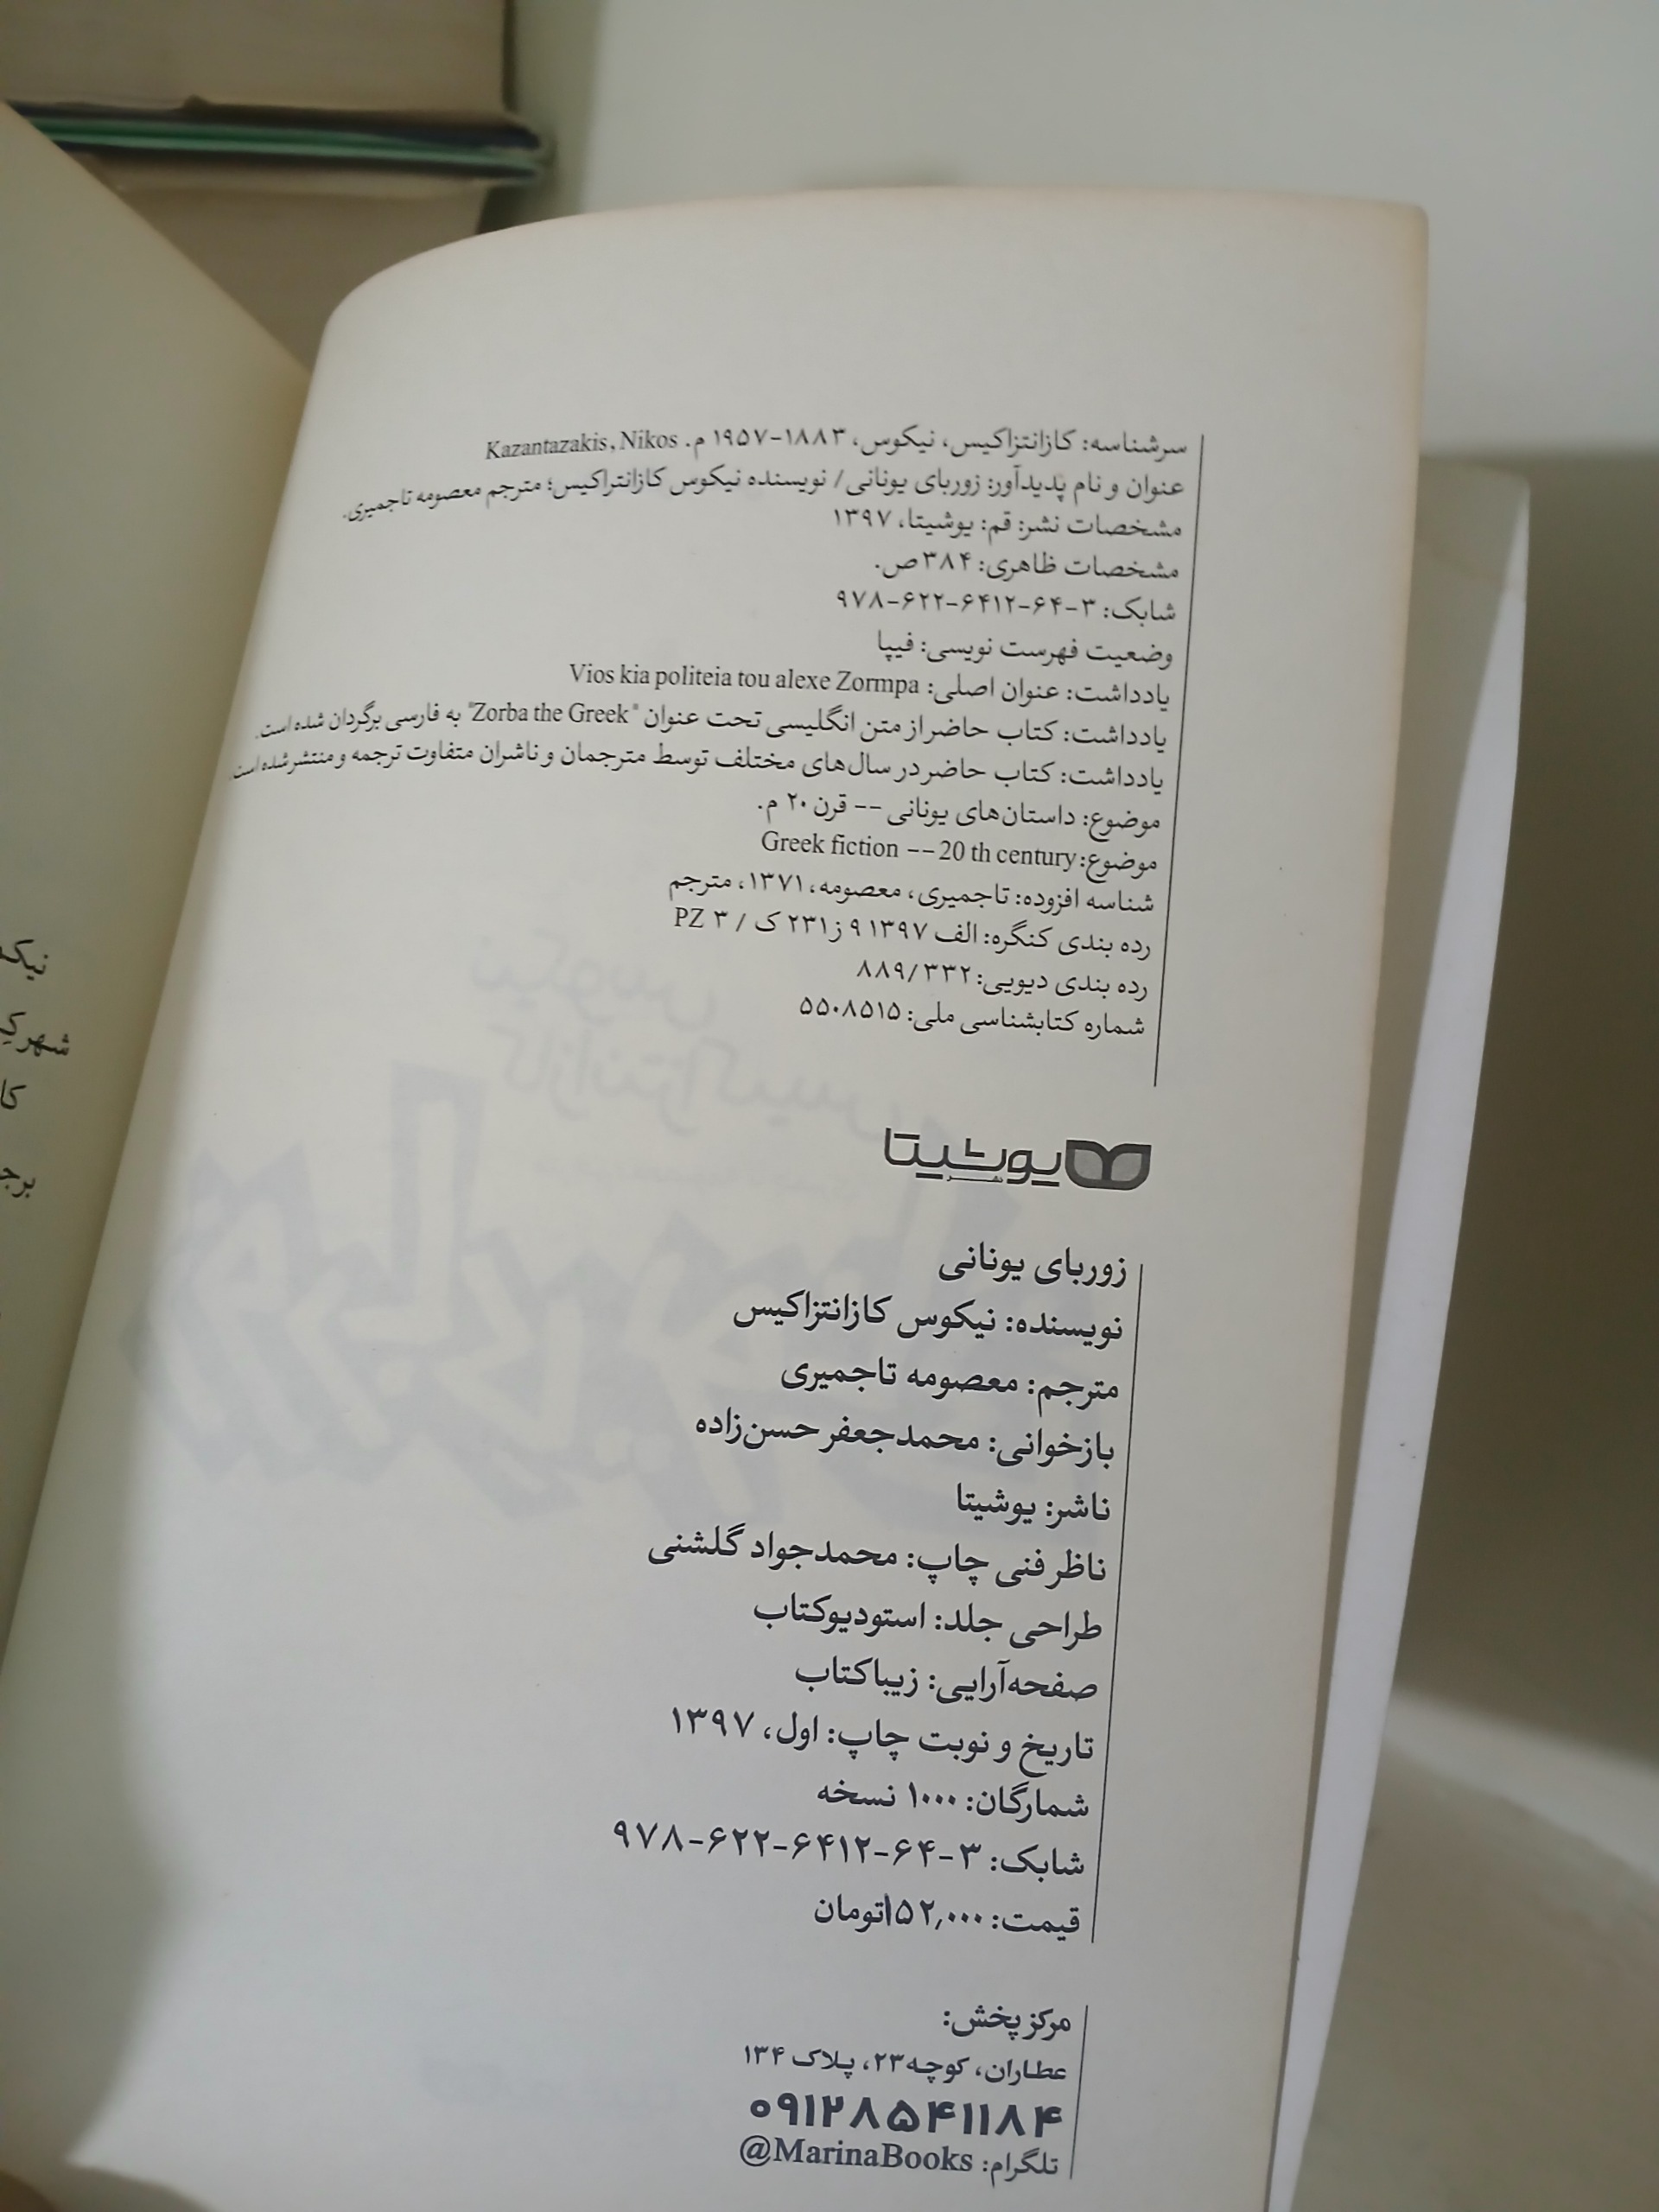 سرشناسه: کازانتزاکیس، نیکوس، ۱۸۸۳-۱۹۵۷ م. Kazantazakis, Nikos
عنوان و نام پدیدآور: زوربای یونانی/ نویسنده نیکوس کازانتراکیس؛ مترجم معصومه تاجمیری.
مشخصات نشر: قم: یوشیتا، ۱۳۹۷
مشخصات ظاهری: ۳۸۴ص.
شابک: ۳-۶۴-۶۴۱۲-۶۲۲-۹۷۸
وضعیت فهرست نویسی: فیپا
یادداشت: عنوان اصلی: Vios kia politeia tou alexe Zormpa
یادداشت: کتاب حاضر از متن انگلیسی تحت عنوان "Zorba the Greek" به فارسی برگردان شده است.
یادداشت: کتاب حاضر در سال‌های مختلف توسط مترجمان و ناشران متفاوت ترجمه و منتشر شده است.
موضوع: داستان‌های یونانی -- قرن ۲۰ م.
موضوع: Greek fiction -- 20 th century
شناسه افزوده: تاجمیری، معصومه، ۱۳۷۱، مترجم
رده بندی کنگره: الف ۱۳۹۷ ۹ ز ۲۳۱ ک / PZ ۳
رده بندی دیویی: ۸۸۹/۳۳۲
شماره کتابشناسی ملی: ۵۵۰۸۵۱۵
یوشیتا
نشر
زوربای یونانی
نویسنده: نیکوس کازانتزاکیس
مترجم: معصومه تاجمیری
بازخوانی: محمدجعفر حسن‌زاده
ناشر: یوشیتا
ناظر فنی چاپ: محمدجواد گلشنی
طراحی جلد: استودیوکتاب
صفحه‌آرایی: زیباکتاب
تاریخ و نوبت چاپ: اول، ۱۳۹۷
شمارگان: ۱۰۰۰ نسخه
شابک: ۳-۶۴-۶۴۱۲-۶۲۲-۹۷۸
قیمت: ۱۵۲,۰۰۰تومان
مرکز پخش:
عطاران، کوچه۲۳، پلاک ۱۳۴
۰۹۱۲۸۵۴۱۱۸۴
تلگرام: @MarinaBooks